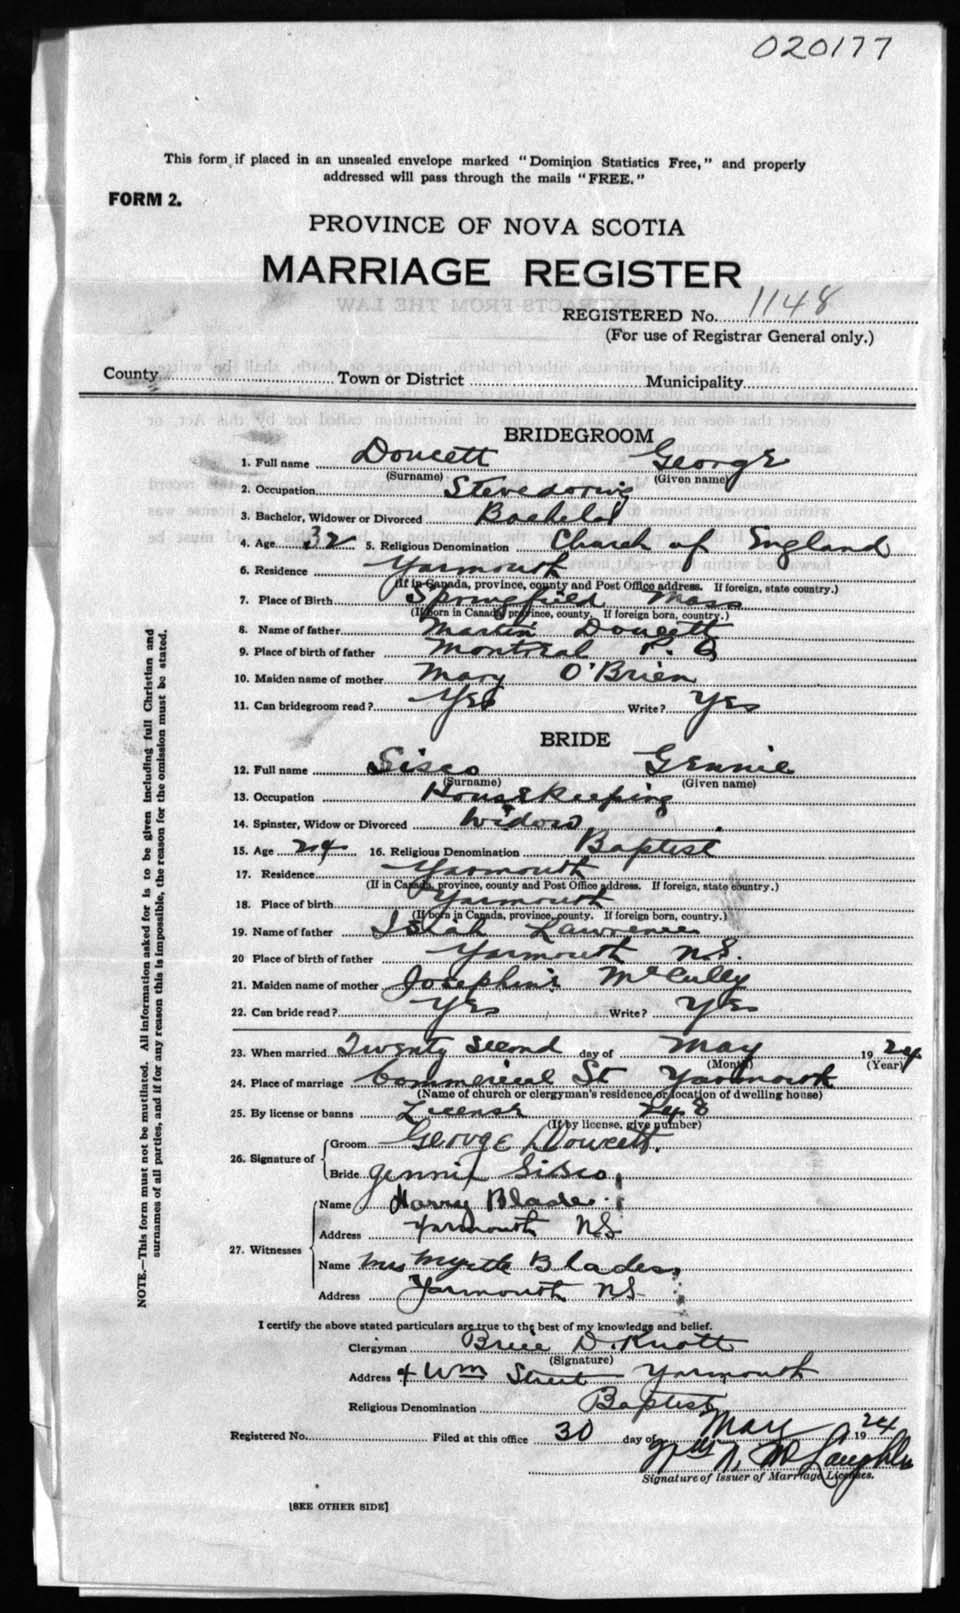 020177
This form if placed in an unsealed envelope marked "Dominion Statistics Free," and properly
addressed will pass through the mails "FREE."
FORM 2.
PROVINCE OF NOVA SCOTIA
MARRIAGE REGISTER
REGISTERED No. 1148
(For use of Registrar General only.)
County Town or District Municipality
BRIDEGROOM
1. Full name Doucett George
(Surname) (Given name)
2. Occupation Stevedoring
3. Bachelor, Widower or Divorced Bachelor
4. Age 32 5. Religious Denomination Church of England
6. Residence Yarmouth
(If in Canada, province, county and Post Office address. If foreign, state country.)
7. Place of Birth Springfield Mass
(If born in Canada, province, county. If foreign born, country.)
8. Name of father Martin Doucett
9. Place of birth of father Montreal P. Q
10. Maiden name of mother Mary O'Brien
11. Can bridegroom read? Yes Write? Yes
BRIDE
12. Full name Sisco Gennie
(Surname) (Given name)
13. Occupation Housekeeping
14. Spinster, Widow or Divorced Widow
15. Age 24 16. Religious Denomination Baptist
17. Residence Yarmouth
(If in Canada, province, county and Post Office address. If foreign, state country.)
18. Place of birth Yarmouth
(If born in Canada, province, county. If foreign born, country.)
19. Name of father Isiah Lawrence
20 Place of birth of father Yarmouth N.S.
21. Maiden name of mother Josephine McCully
22. Can bride read? Yes Write? Yes
23. When married Twenty second day of May 1924
(Month) (Year)
24. Place of marriage Commercial St Yarmouth
(Name of church or clergyman's residence, or location of dwelling house)
25. By license or banns License 248
(If by license, give number)
26. Signature of
Groom George Doucett.
Bride Jennie Sisco
27. Witnesses
Name Harry Blades
Address Yarmouth NS
Name Mrs Myrtle Blades
Address Yarmouth NS
I certify the above stated particulars are true to the best of my knowledge and belief.
Clergyman Brice D. Knott
(Signature)
Address 4 Wm Street Yarmouth
Religious Denomination Baptist
Registered No. Filed at this office 30 day of May 1924
McLaughlin
Signature of Issuer of Marriage Licenses.
[SEE OTHER SIDE]
NOTE.—This form must not be mutilated. All information asked for is to be given including full Christian and
surnames of all parties, and if for any reason this is impossible, the reason for the omission must be stated.